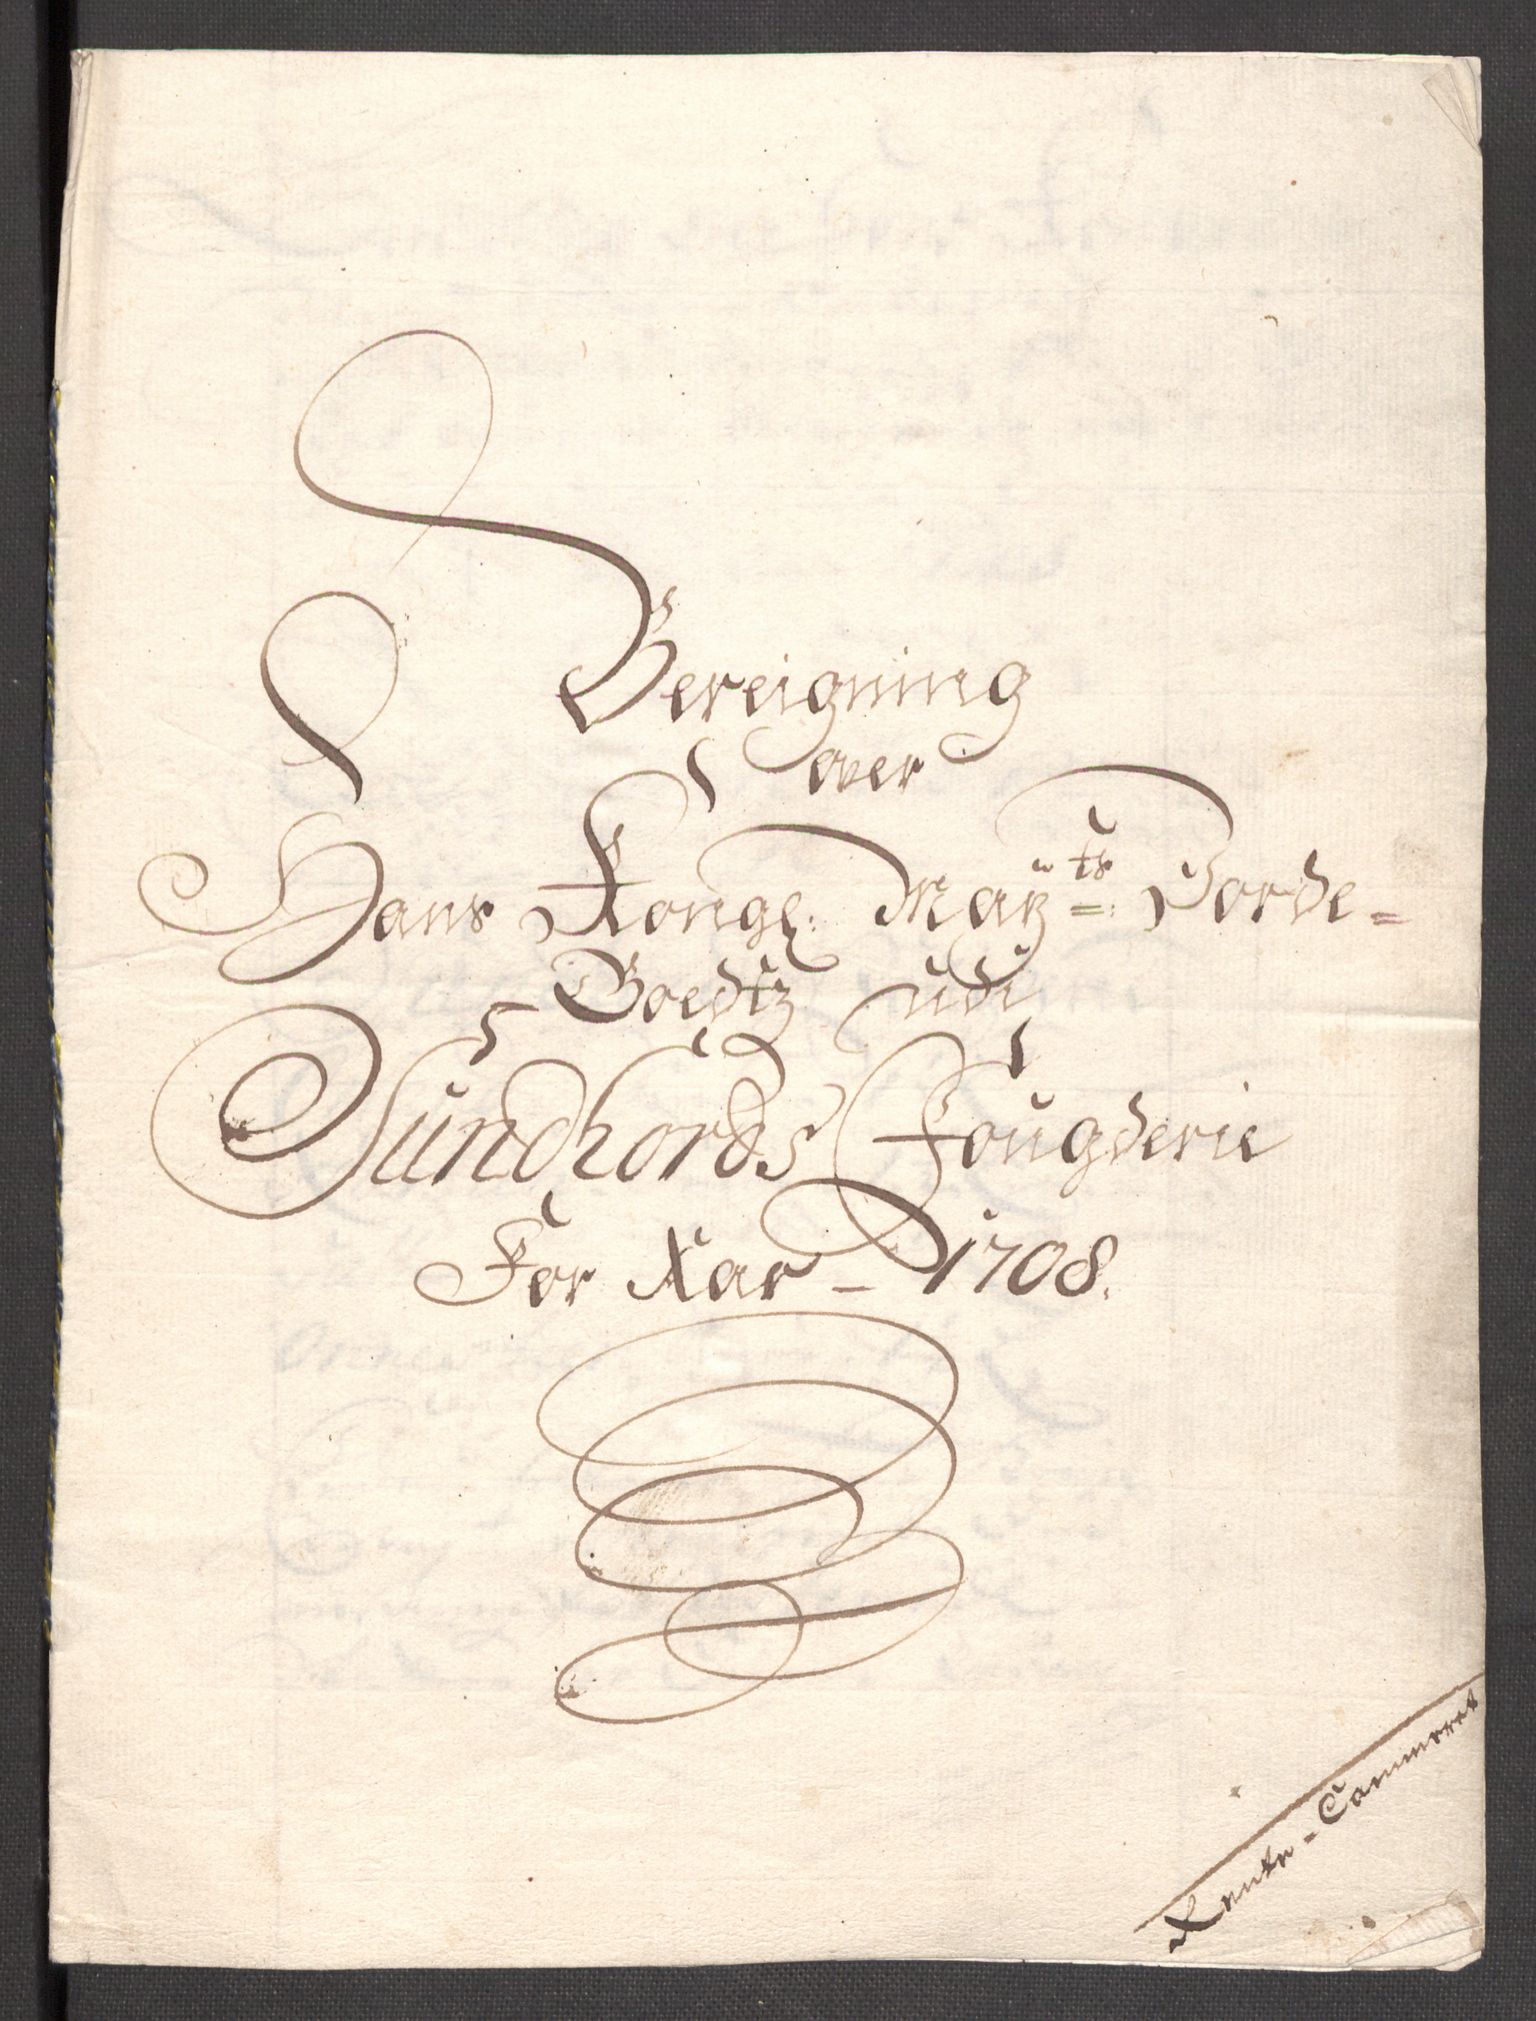 Bereigning
over
Hans Kongl: Maÿ=ts: Jorde=
Goedtz udi
Sundhords Fougderie
For Aar - 1708.
Rente-Cammeret